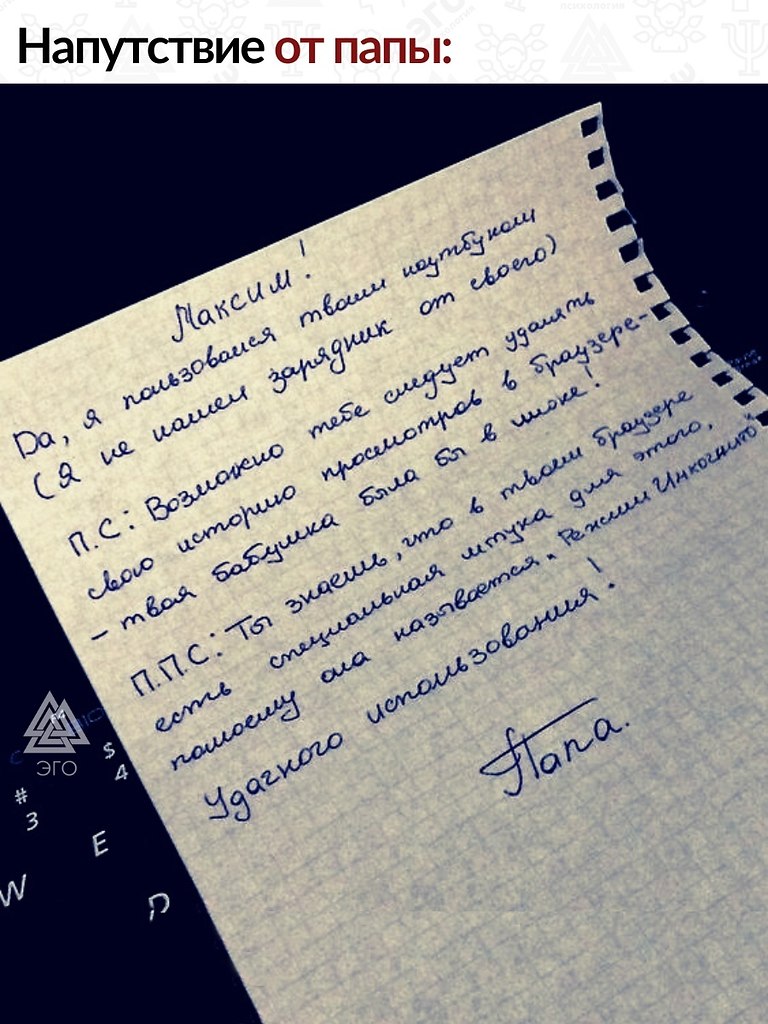 Напутствие от папы:
Максим!
Да, я пользовался твоим ноутбуком
(Я не нашел зарядник от своего)
П.С: Возможно тебе следует удалять
свою историю просмотров в браузере-
- твоя бабушка была бы в шоке!
П.П.С: Ты знаешь, что в твоем браузере
есть специальная штука для этого,
помоему она называется „Режим Инкогнито"
Удачного использования!
Папа.
ЭГО
$
4
#
3
E
W
D